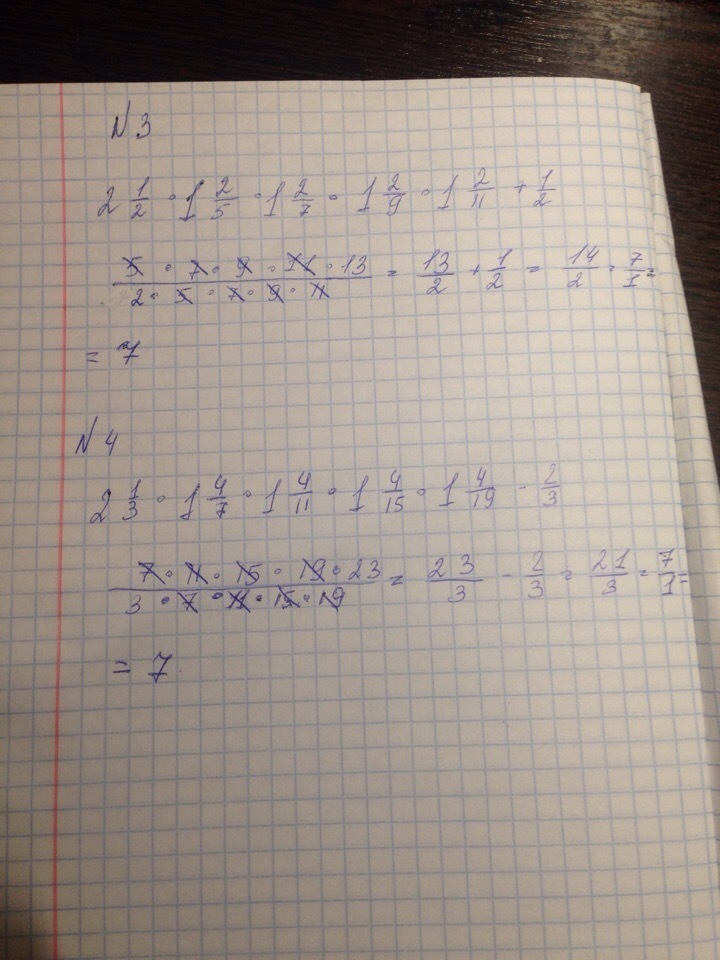 N 3
2 1/2 · 1 2/5 · 1 2/7 · 1 2/9 · 1 2/11 + 1/2
5 · 7 · 9 · 11 · 13 / 2 · 5 · 7 · 9 · 11 = 13/2 + 1/2 = 14/2 = 7/1 =
= 7
N 4
2 1/3 · 1 4/7 · 1 4/11 · 1 4/15 · 1 4/19 - 2/3
7 · 11 · 15 · 19 · 23 / 3 · 7 · 11 · 15 · 19 = 23/3 - 2/3 = 21/3 = 7/1 =
= 7.